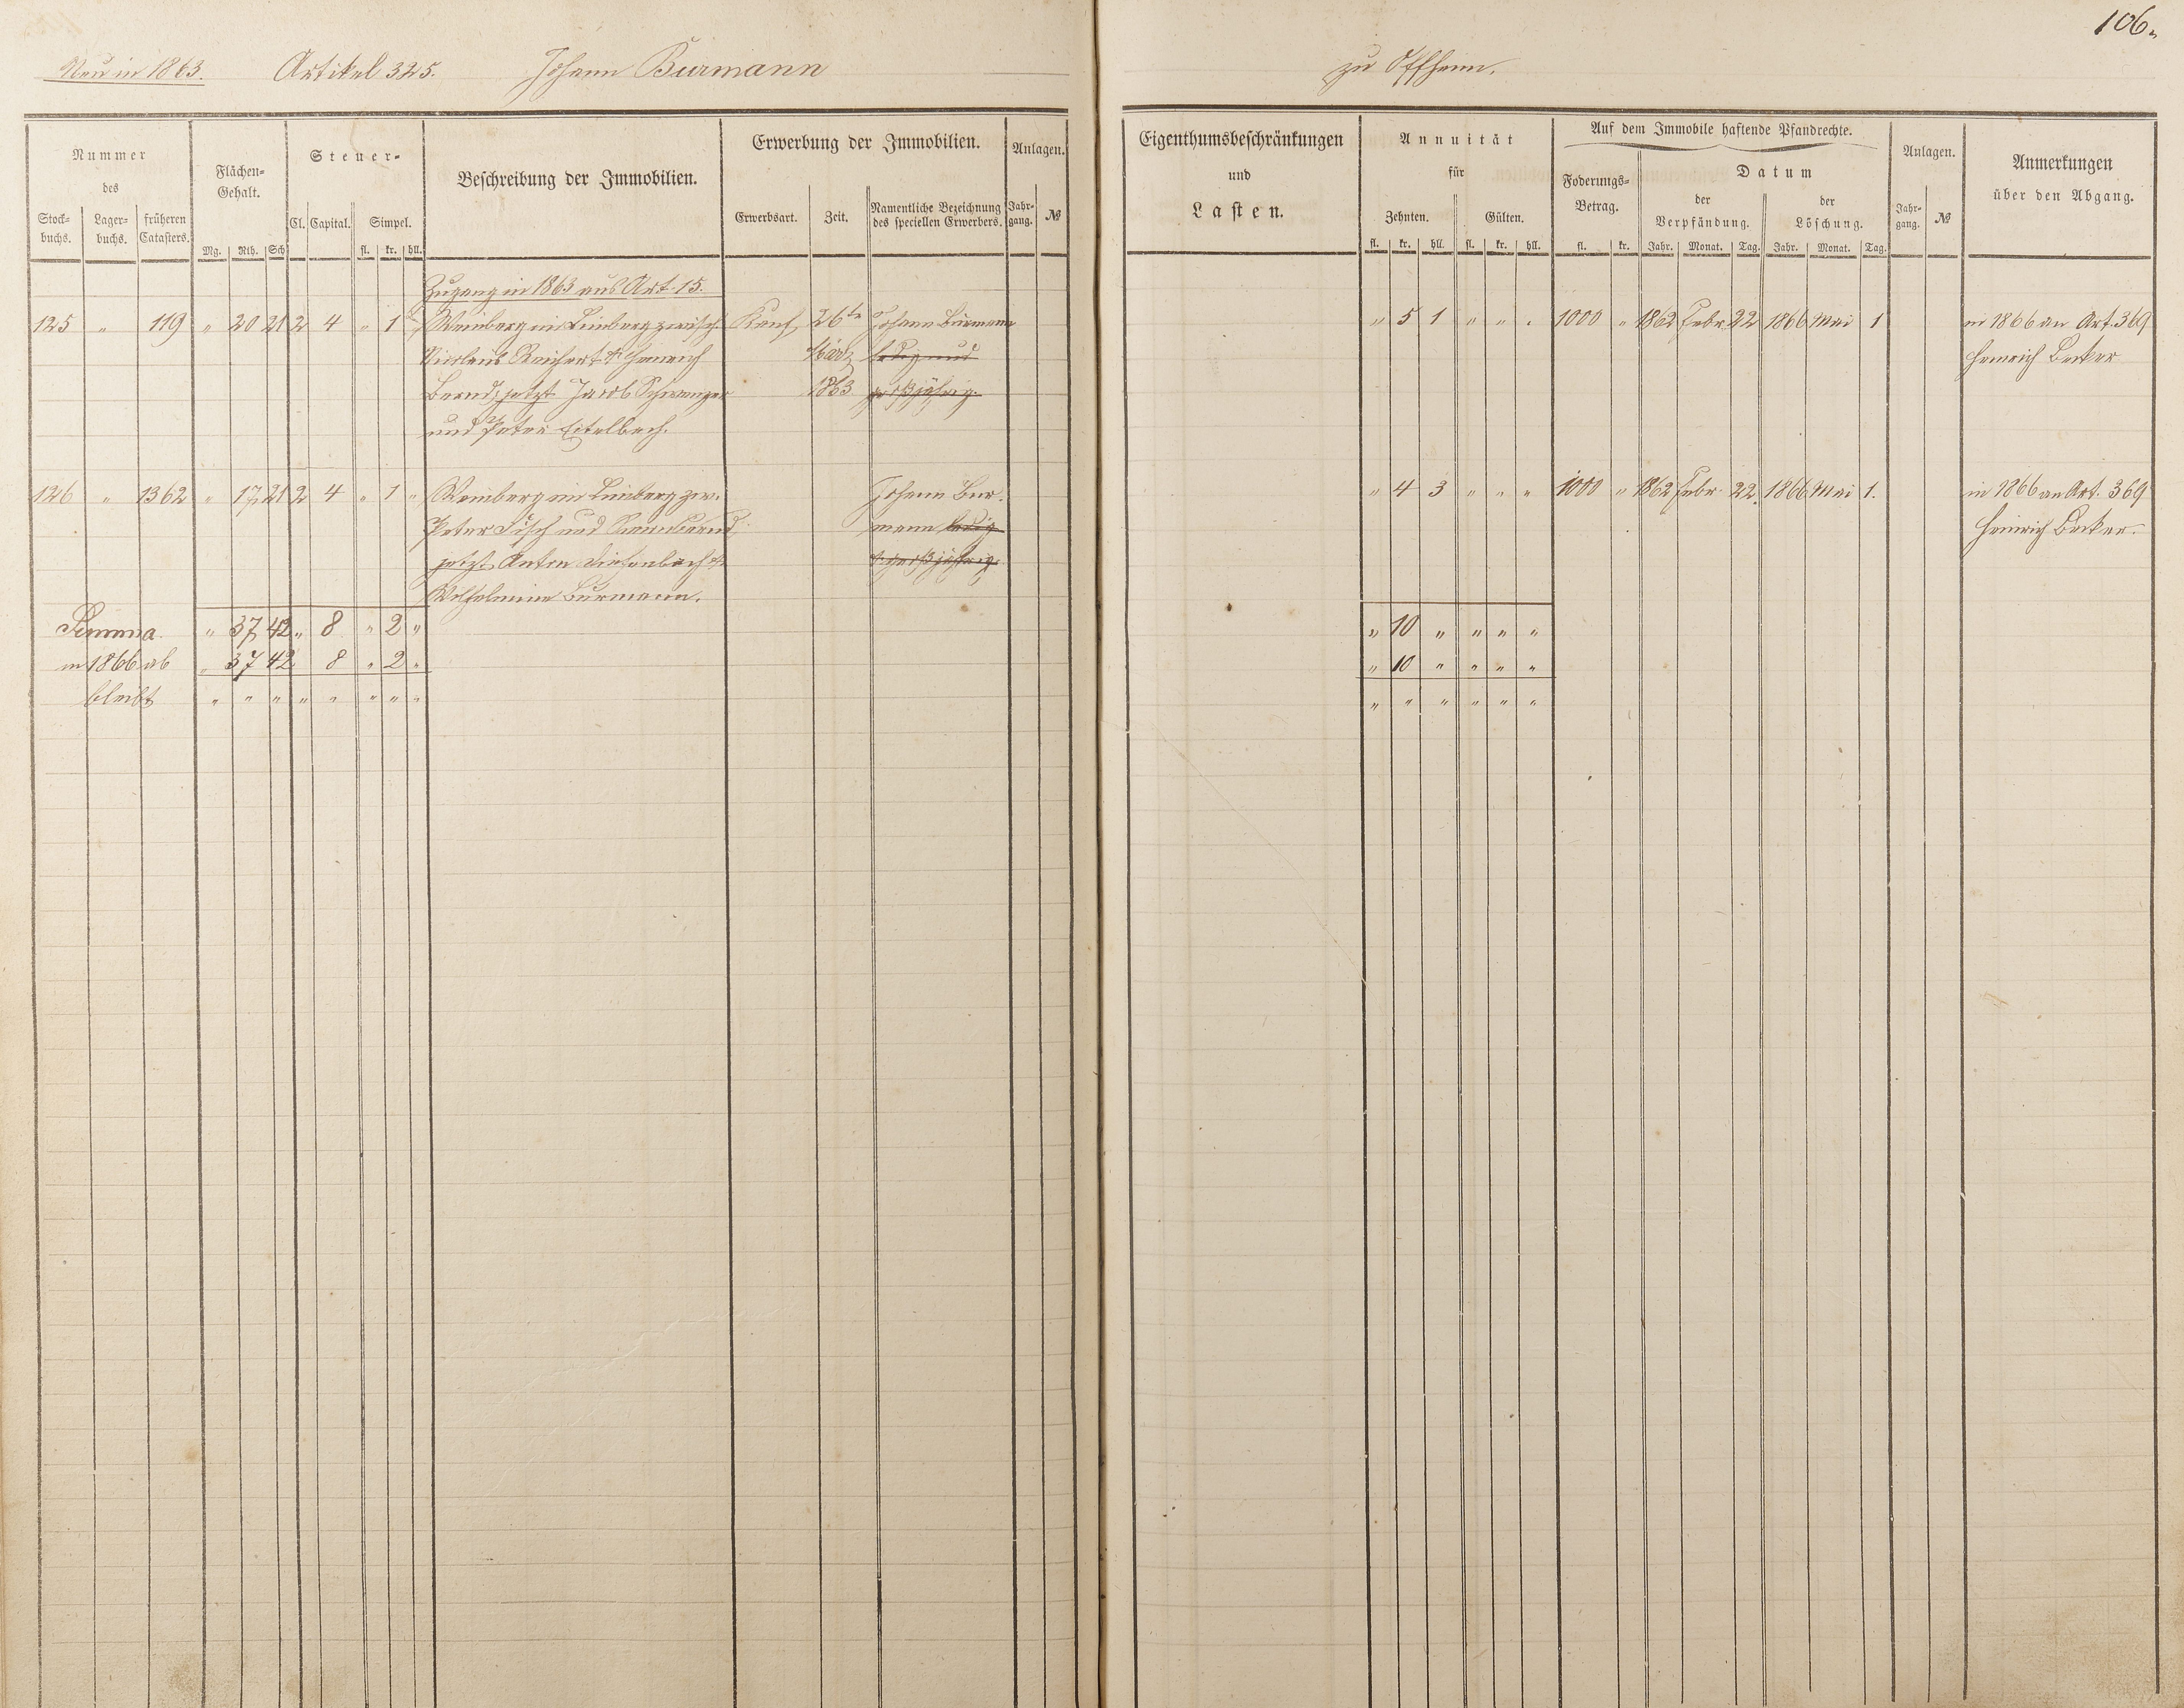 106.
Neu in 1863. Artikel 325. Johann Burmann zu Offheim.
Nummer des
Stockbuchs. Lagerbuchs. früheren Catasters.
Flächen-Gehalt.
Mg. Rth. Sch
Steuer-
Cl. Capital. Simpel.
fl. kr. hll.
Beschreibung der Immobilien.
Erwerbung der Immobilien.
Erwerbsart. Zeit. Namentliche Bezeichnung des speciellen Erwerbers.
Anlagen.
Jahrgang. №
Eigenthumsbeschränkungen
und
Lasten.
Annuität
für
Zehnten. Gülten.
fl. kr. hll. fl. kr. hll.
Auf dem Immobile haftende Pfandrechte.
Foderungs-Betrag.
fl. kr.
Datum
der Verpfändung. der Löschung.
Jahr. Monat. Tag. Jahr. Monat. Tag.
Anlagen.
Jahrgang. №
Anmerkungen
über den Abgang.
Zugang in 1863 aus Art. 15.
125 " 119 " 20 21 2 4 " 1 " Weinberg im Leinberg zwisch. Kauf 26te Johann Burmann " 5 1 " " " 1000 " 1862 Febr. 22 1866 Mai 1 in 1866 an Art. 369
Reichert & Heinrich März ledig und Heinrich Becker
jetzt Jacob 1863 großjährig.
und Peter Eitelbach.
126 " 1362 " 17 21 2 4 " 1 " Weinberg im Leinberg zw. Johann Bur- " 4 3 " " " 1000 " 1862 Febr. 22. 1866 Mai 1. in 1866 an Art. 369
Peter und mann ledig Heinrich Becker.
jetzt Anton Diefenbach & & großjährig.
Wilhelmine Burmann.
Summa " 37 42 " 8 " 2 " " 10 " " " "
in 1866 ab " 37 42 8 " 2 " " 10 " " " "
bleibt " " " " " " " " " " " " " "